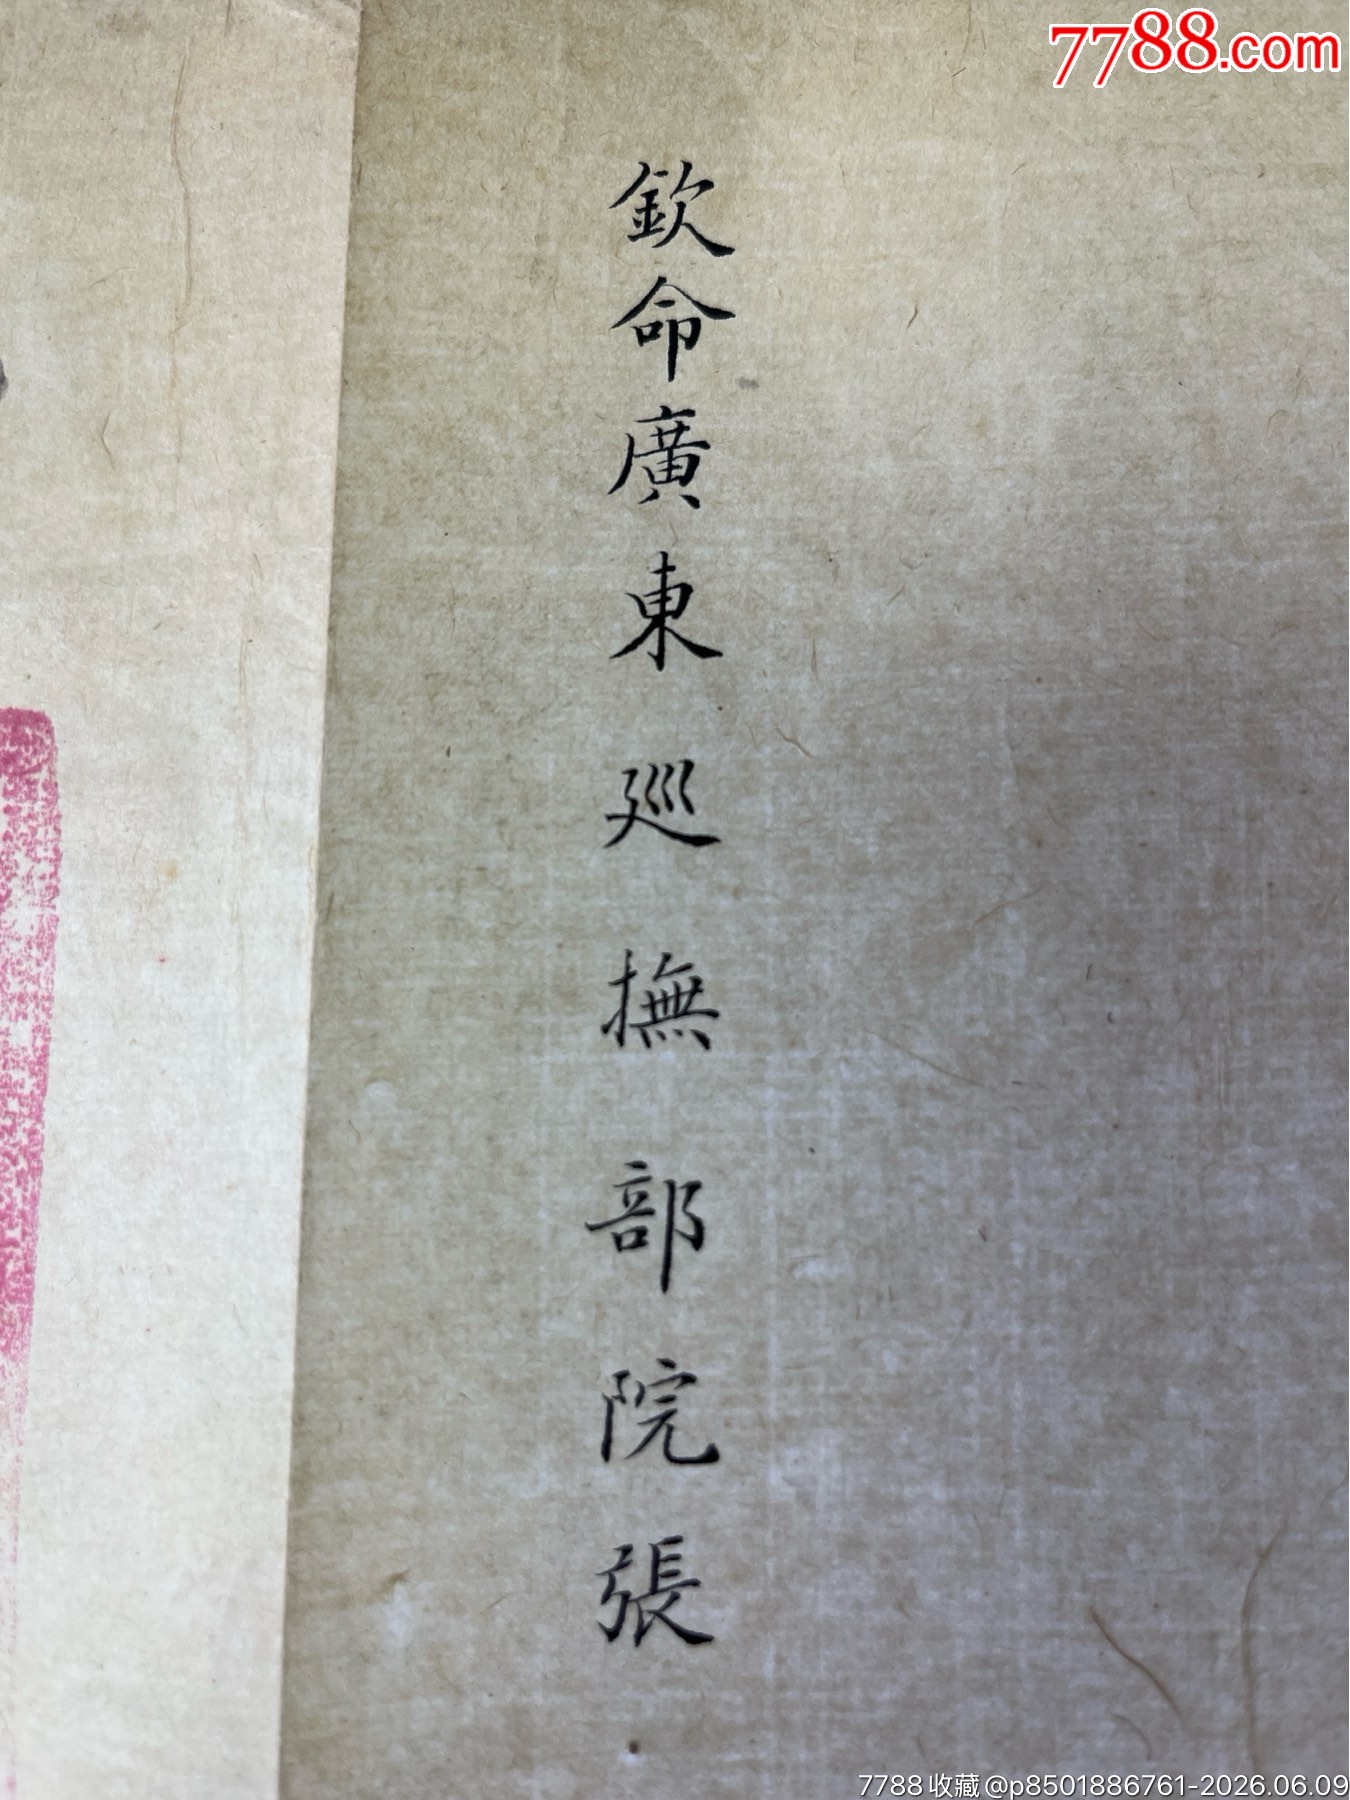 7788.com
欽命廣東廵撫部院張
7788收藏@p8501886761-2026.06.09